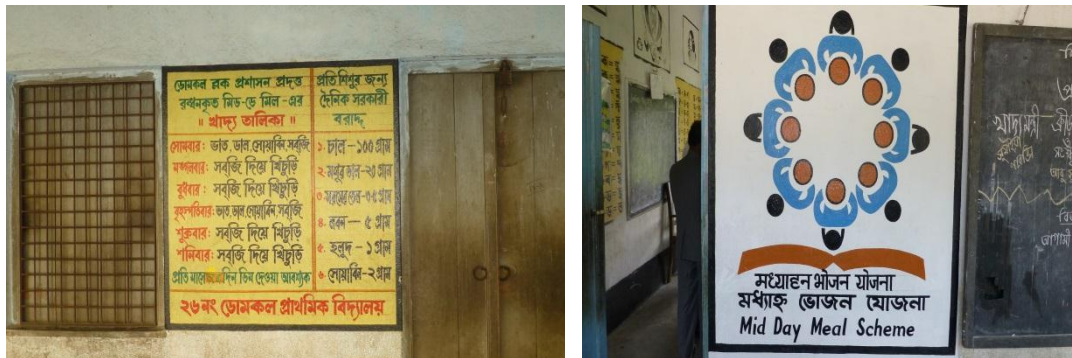 ডোমকল ব্লক প্রশাসন প্রদত্ত
রন্ধনকৃত মিড-ডে মিল-এর
॥ খাদ্য তালিকা ॥
সোমবার: ভাত, ডাল, সোয়াবিন, সবজি
মঙ্গলবার: সবজি দিয়ে খিচুড়ি
বুধবার: সবজি দিয়ে খিচুড়ি
বৃহস্পতিবার: ভাত, ডাল, সোয়াবিন, সবজি
শুক্রবার: সবজি দিয়ে খিচুড়ি
শনিবার: সবজি দিয়ে খিচুড়ি
প্রতি মাসে দিন ডিম দেওয়া আবশ্যক
প্রতি শিশুর জন্য
দৈনিক সরকারী
বরাদ্দ
১. চাল — ১০০ গ্রাম
২. মসুর ডাল - ২০ গ্রাম
৩. সরষের তেল
৪. লবন — ৫ গ্রাম
৫. হলুদ — ১ গ্রাম
৬. সোয়াবিন - ২ গ্রাম
২৬নং ডোমকল প্রাথমিক বিদ্যালয়
मध्याहन भोजन योजना
মধ্যাহ্ন ভোজন যোজনা
Mid Day Meal Scheme